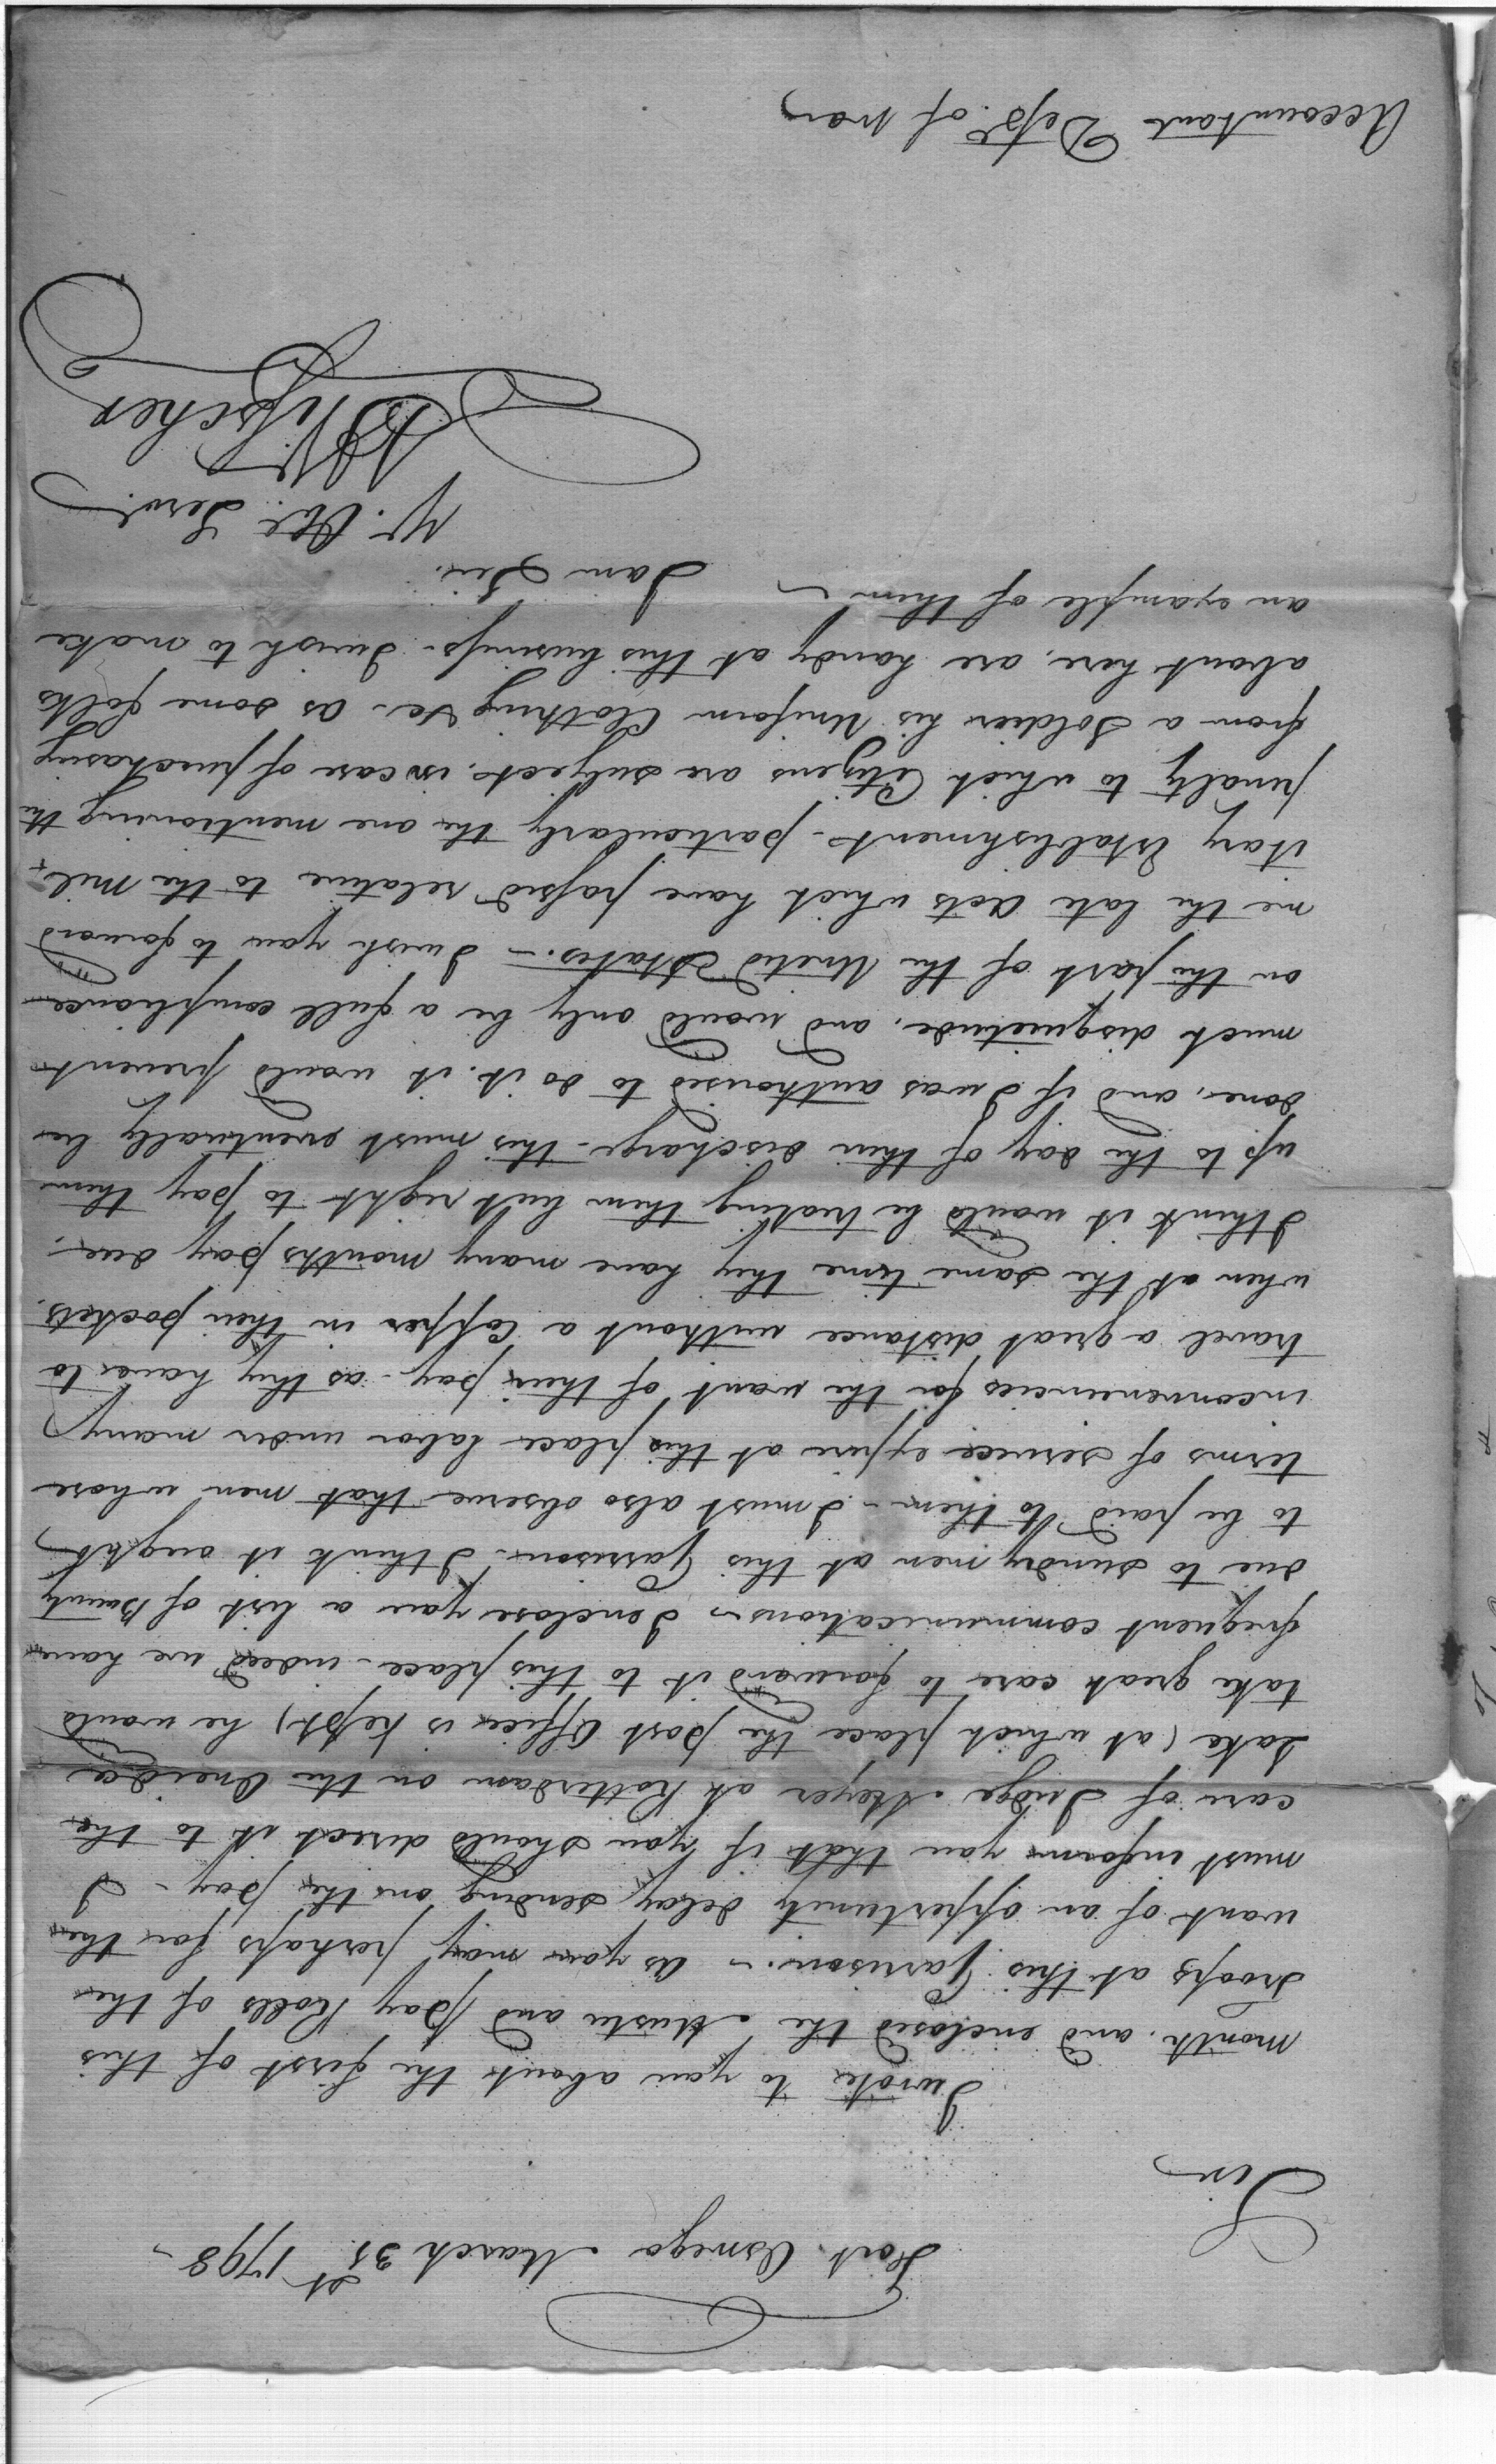 Fort Oswego March 31st 1798 -
Sir
I wrote to you about the first of this
month, and enclosed the Muster and Pay Rolls of the
Troops at this Garrison. - As you may perhaps for the
want of an oppertunity delay sending on the pay - I
must inform you that if you should direct it to the
care of Judge Meyer at Rotterdam on the Oneida
Lake (at which place the post Office is kept) he would
take great care to forward it to this place - indeed we have
frequent communications - I enclose you a list of Bounty
due to sundry men at this Garrison - I think it ought
to be paid to them - I must also observe that men whose
terms of service expire at this place labor under many
inconveniencies for the want of their pay - as they have to
travel a great distance without a Copper in their pockets.
when at the same time they have many months pay due,
I think it would be treating them but right to pay them
up to the day of their discharge - this must eventually be
done, and if I was authorised to do it, it would prevent
much disquietude, and would only be a full compliance
on the part of the United States. - I wish you to forward
me the late Acts which have passed relative to the mil-
itary Establishment - particularly the one mentioning the
penalty to which Citizens are subject, in case of purchasing
from a Soldier his Uniform Clothing &c - as some folks
about here, are handy at this business - I wish to make
an example of them -
I am Sir.
Yr. Obe. Servt.
Accountant Dept. of War